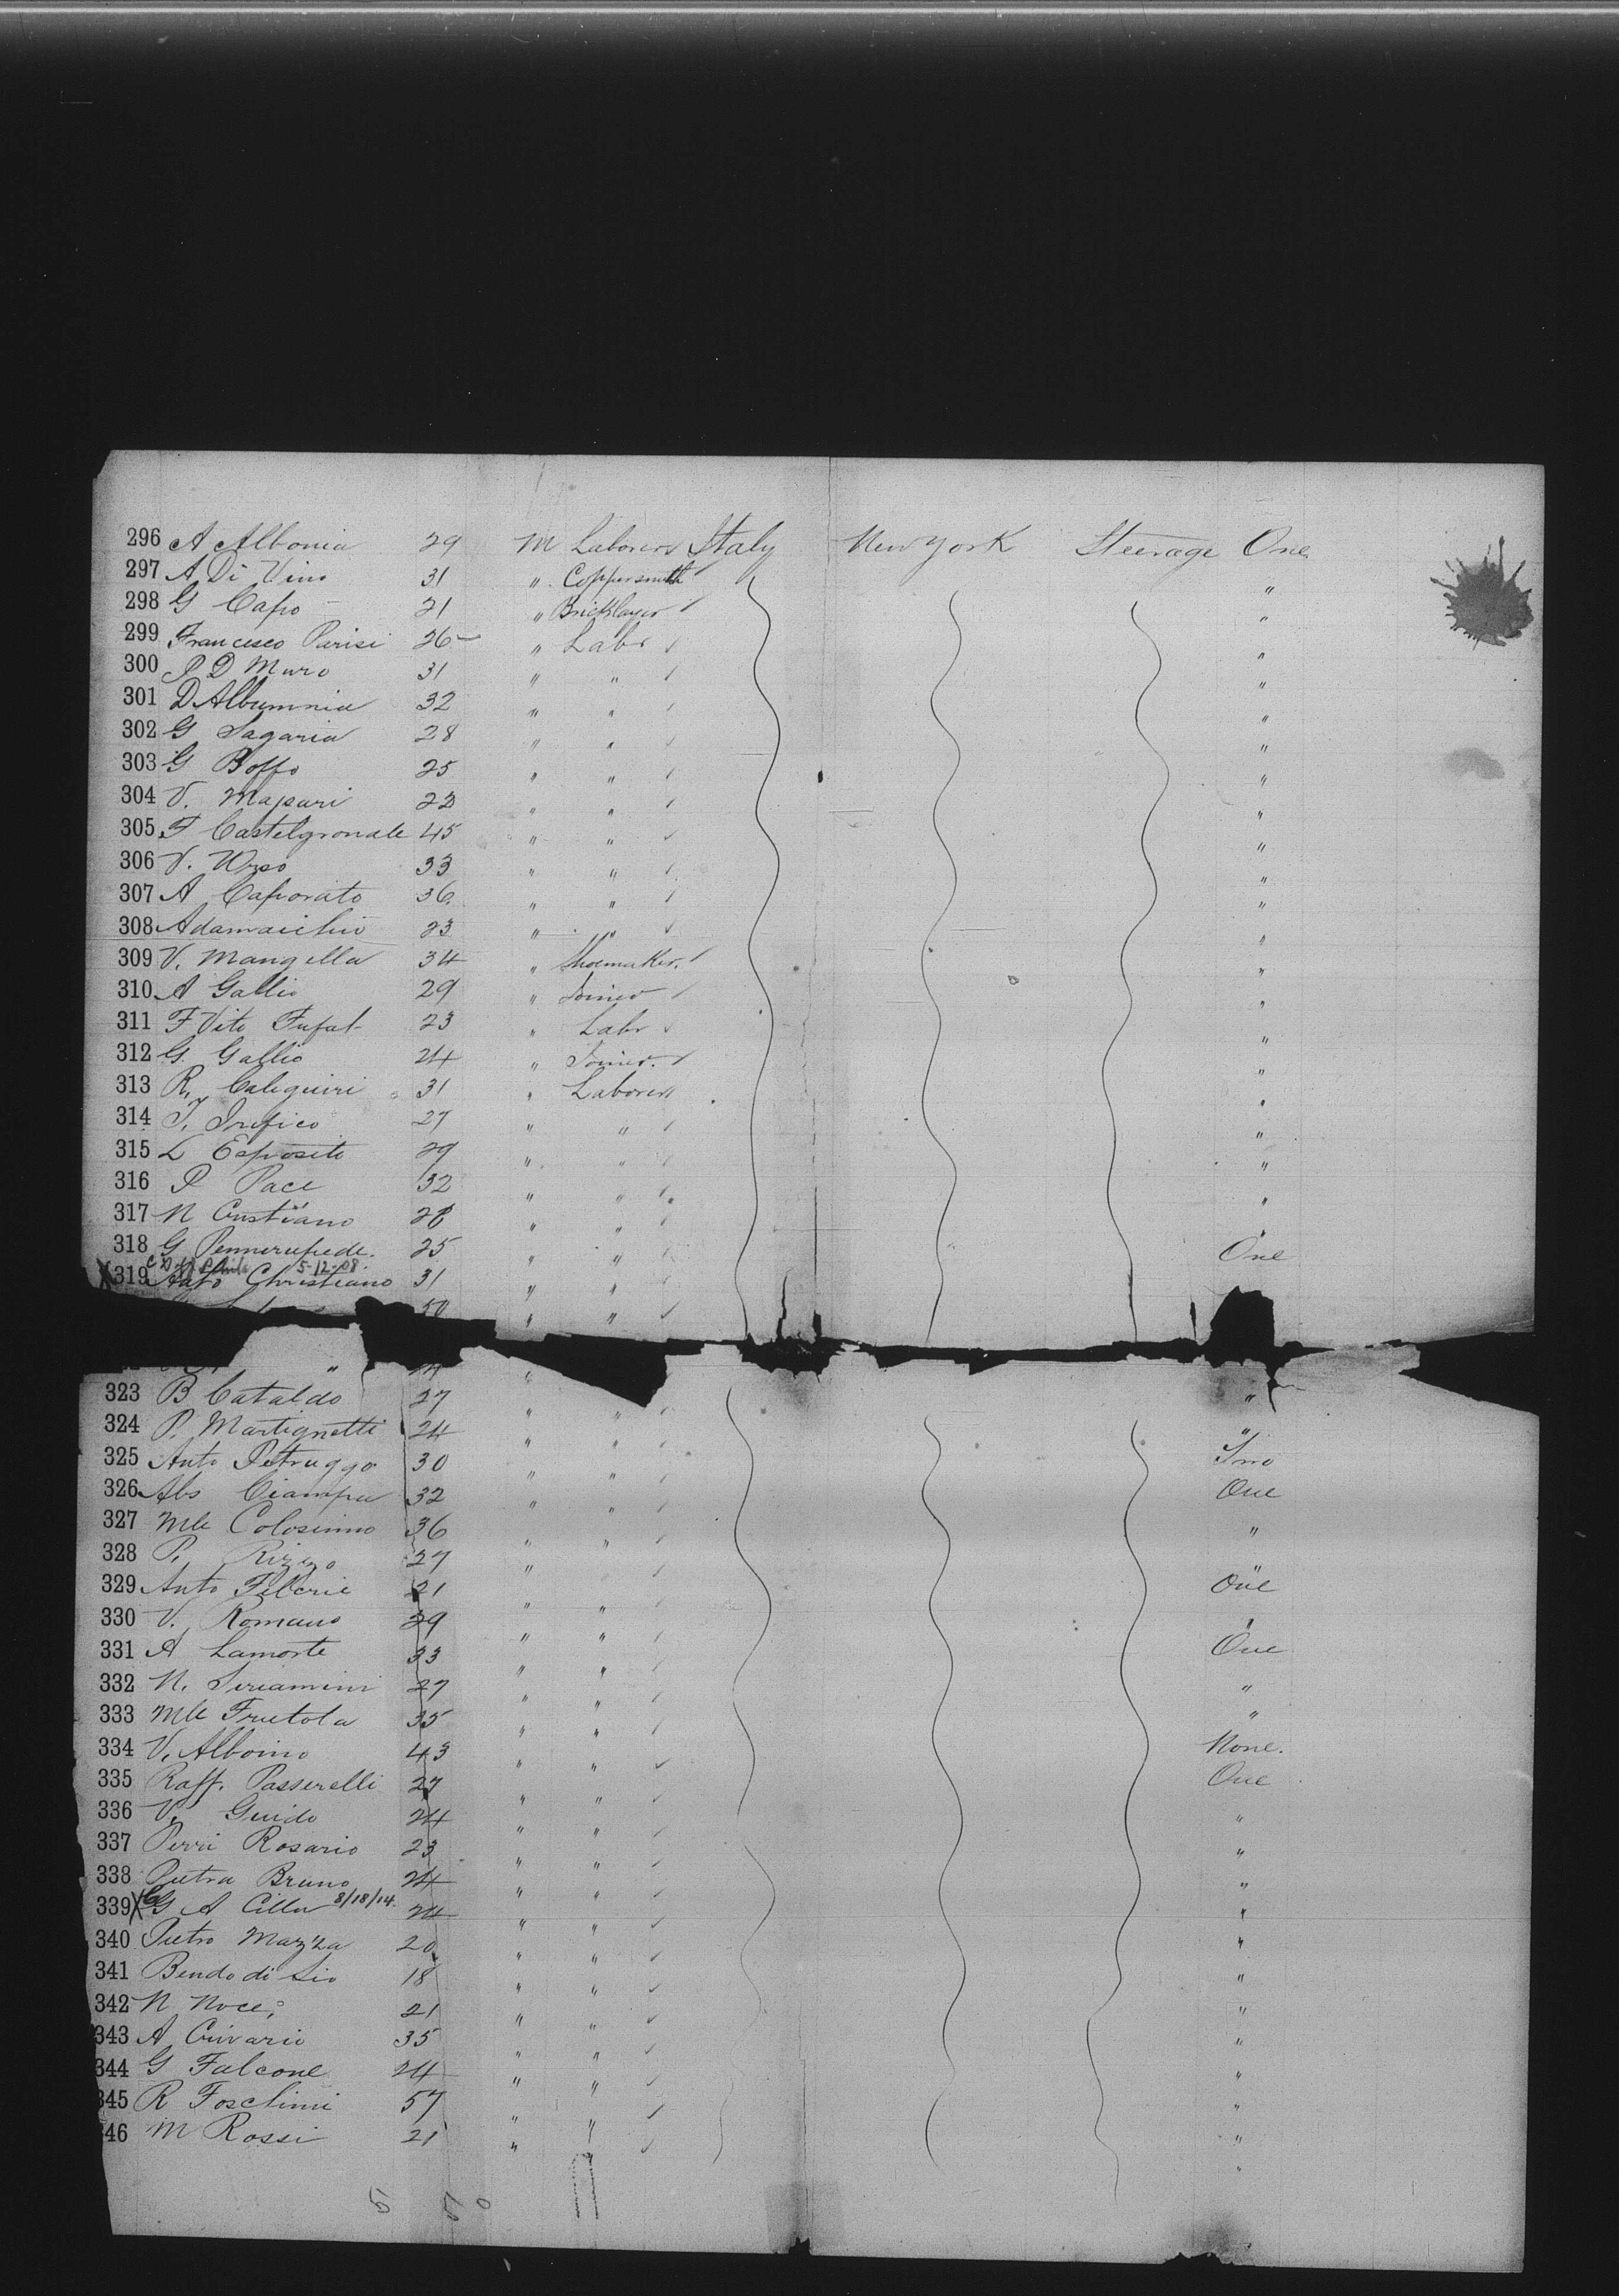 296 A Albonia 29 M Laborers Italy New York Steerage One
297 A Di Vino 31 " Coppersmith "
298 G Capo 21 " Bricklayer "
299 Francesco Parisi 26 " Labr "
300 P D Muro 31 " " "
301 D Albumnia 32 " " "
302 G Sagaria 28 " " "
303 G Boffo 25 " " "
304 V. Mapari 22 " " "
305 F Castelgronde 45 " " "
306 V. Urso 33 " " "
307 A Caporato 36 " " "
308 23 " " "
309 V. Mangella 34 " Shoemaker. "
310 A Gallio 29 " Joiner "
311 F Vito 23 " Labr "
312 G. Gallio 24 " Joiner. "
313 R. Caliguiri 31 " Laborers "
314 27 " " "
315 L Esposito 29 " " "
316 P Pace 32 " " "
317 N Cristiano 28 " " "
318 G 25 " " One
5-12-08.
X 319 Christiano 31 " "
50 " "
" 24 "
323 B Cataldo 27 " " "
324 P. Martignetti 24 " " "
325 Anto Petruggo 30 " " Two
326 Abs Ciampa 32 " " One
327 Mle Colosimo 36 " " "
328 P. Rizzo 27 " One
329 Anto 21 " " "
330 V. Romano 29 " "
331 A Lamorte 33 " " One
332 N. 27 " " "
333 Mle Frutola 35 " " "
334 V. Alboino 43 " " None.
335 Raff. Passerelli 27 " " One
336 V. Guido 24 " " "
337 Perri Rosario 23 " " "
338 Pietra Bruno 24 " " "
339 X G A Cilla 8/18/14. 24 " " "
340 Pietro Mazza 20 " " "
341 Bendo di Lio 18 " " "
342 N Noce 21 " " "
343 A Crivario 35 " " "
344 G Falcone 24 " " "
345 R Foschini 57 " " "
46 M Rossi 21 " " "